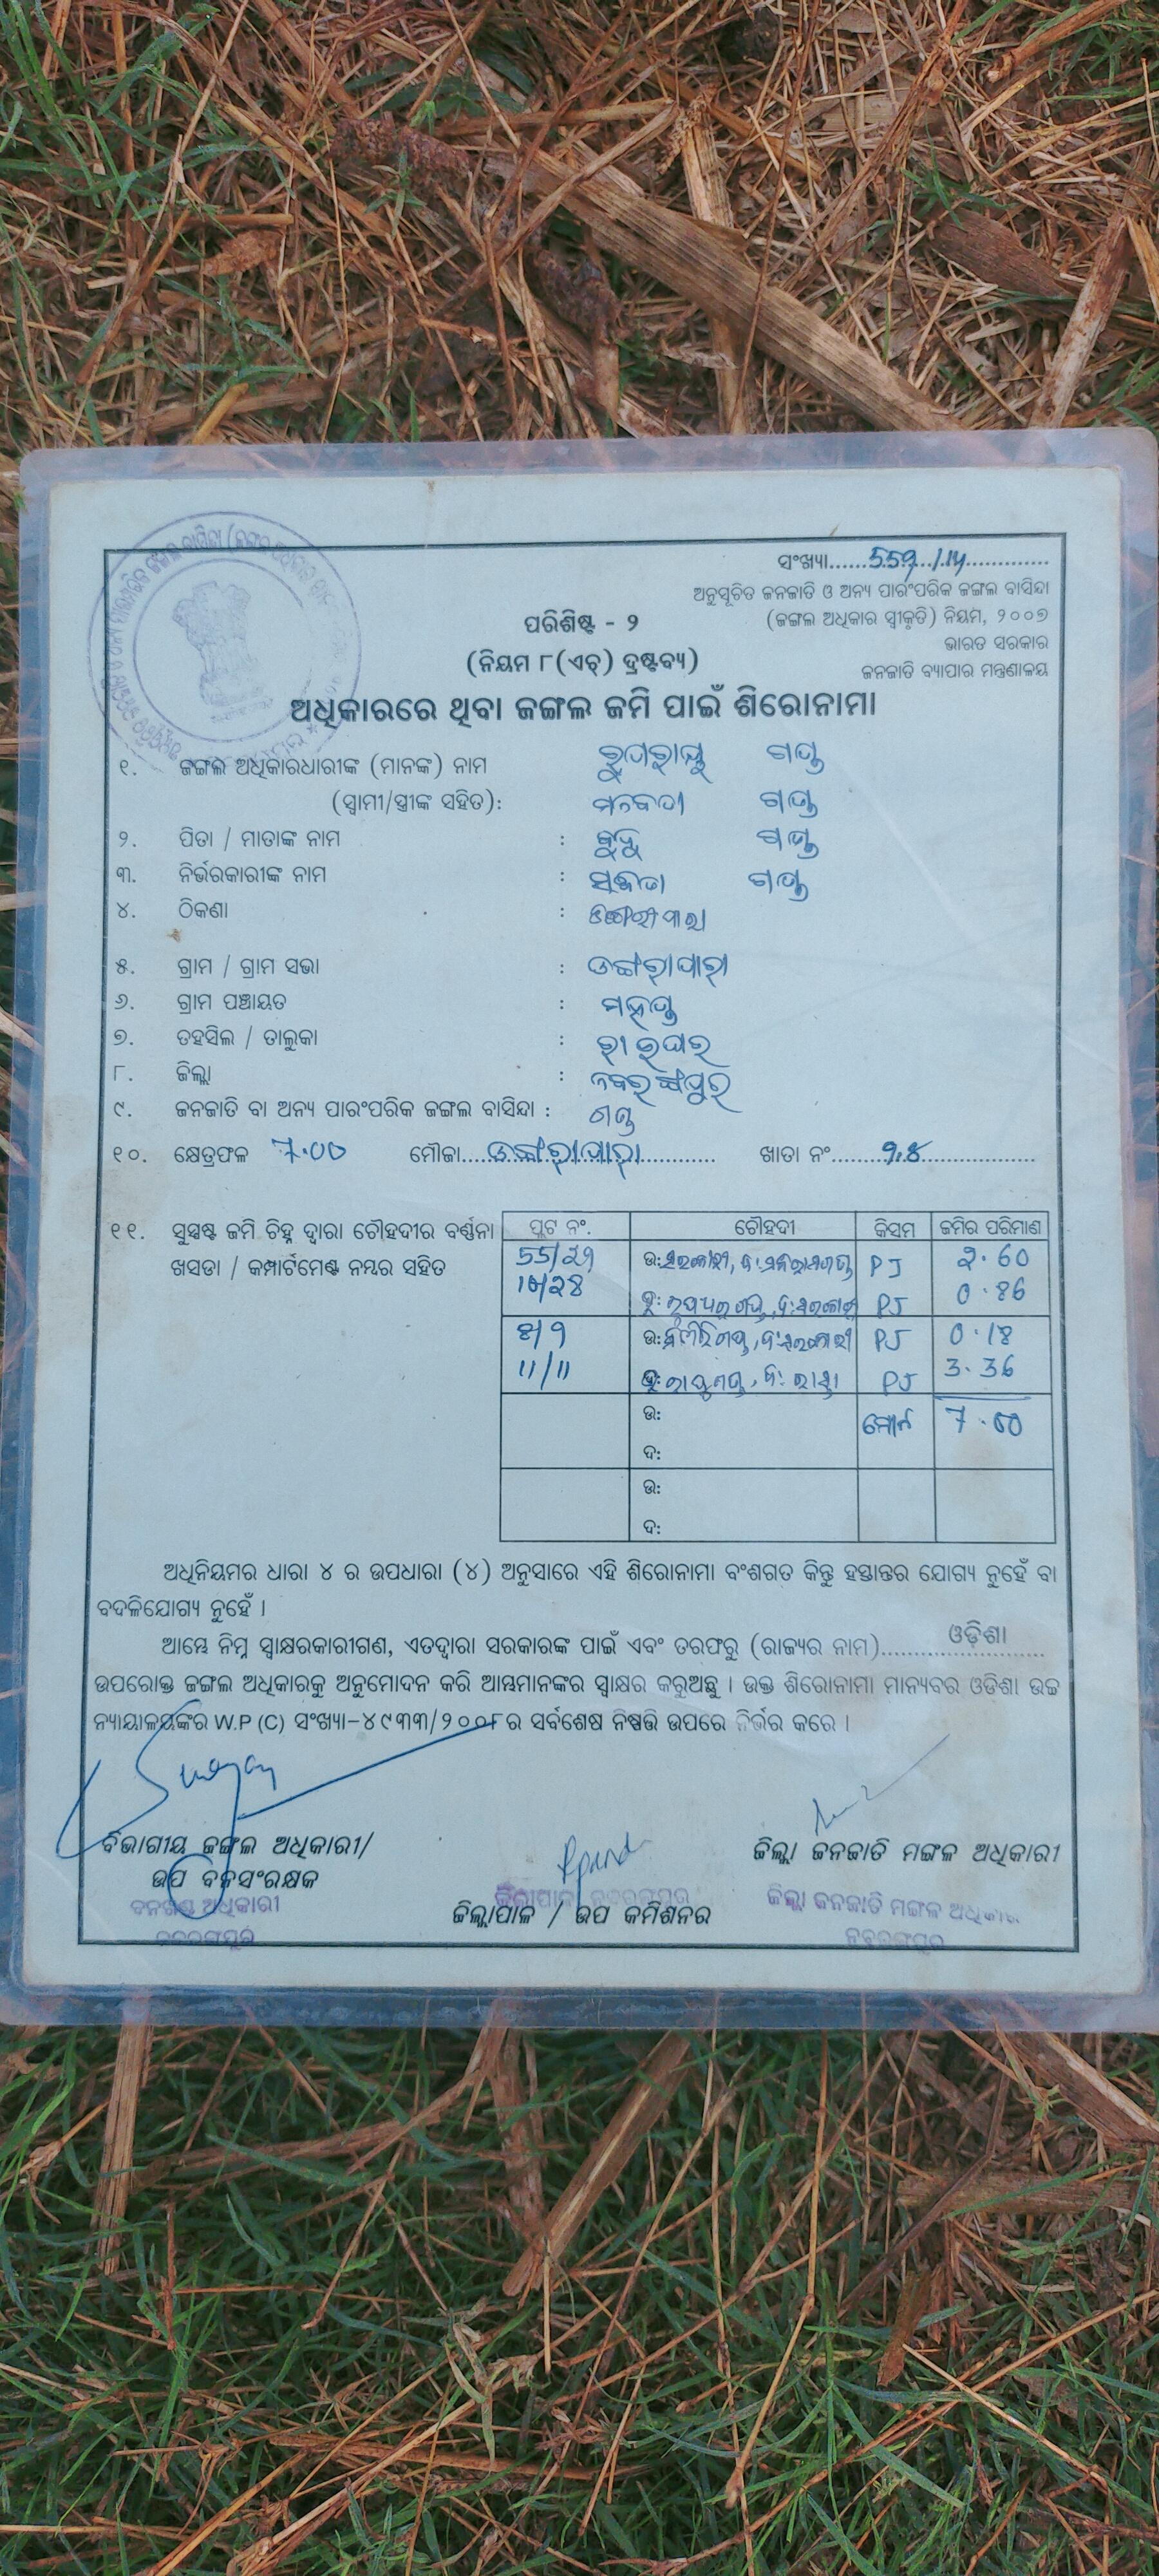 ସଂଖ୍ୟା......559/14................
ଅନୁସୂଚିତ ଜନଜାତି ଓ ଅନ୍ୟ ପାରଂପରିକ ଜଙ୍ଗଲ ବାସିନ୍ଦା
(ଜଙ୍ଗଲ ଅଧିକାର ସ୍ୱୀକୃତି) ନିୟମ, ୨୦୦୭
ଭାରତ ସରକାର
ଜନଜାତି ବ୍ୟାପାର ମନ୍ତ୍ରଣାଳୟ
ପରିଶିଷ୍ଟ - ୨
(ନିୟମ ୮(ଏଚ୍) ଦ୍ରଷ୍ଟବ୍ୟ)
ଅଧିକାରରେ ଥିବା ଜଙ୍ଗଲ ଜମି ପାଇଁ ଶିରୋନାମା
୧. ଜଙ୍ଗଲ ଅଧିକାରଧାରୀଙ୍କ (ମାନଙ୍କ) ନାମ ଗଣ୍ଡ
(ସ୍ୱାମୀ/ସ୍ତ୍ରୀଙ୍କ ସହିତ): ଗଣ୍ଡ
୨. ପିତା / ମାତାଙ୍କ ନାମ : ଗଣ୍ଡ
୩. ନିର୍ଭରକାରୀଙ୍କ ନାମ : ଗଣ୍ଡ
୪. ଠିକଣା :
୫. ଗ୍ରାମ / ଗ୍ରାମ ସଭା : ଡଙ୍ଗରୀପାରା
୬. ଗ୍ରାମ ପଞ୍ଚାୟତ :
୭. ତହସିଲ / ତାଲୁକା : ରାଇଘର
୮. ଜିଲ୍ଲା : ନବରଙ୍ଗପୁର
୯. ଜନଜାତି ବା ଅନ୍ୟ ପାରଂପରିକ ଜଙ୍ଗଲ ବାସିନ୍ଦା : ଗଣ୍ଡ
୧୦. କ୍ଷେତ୍ରଫଳ 7.00 ମୌଜା....ଡଙ୍ଗରୀପାରା............ ଖାତା ନଂ..............
୧୧. ସୁସ୍ପଷ୍ଟ ଜମି ଚିହ୍ନ ଦ୍ୱାରା ଚୌହଦୀର ବର୍ଣ୍ଣନା
ଖସଡା / କମ୍ପାର୍ଟମେଣ୍ଟ ନମ୍ବର ସହିତ
ପ୍ଲଟ ନଂ. ଚୌହଦୀ କିସମ ଜମିର ପରିମାଣ
ଉ: PJ 2.60
PJ 0.86
ଉ: PJ 0.18
11/11 PJ 3.36
ଉ: ମୋଟ 7.00
ଦ:
ଉ:
ଦ:
ଅଧିନିୟମର ଧାରା ୪ ର ଉପଧାରା (୪) ଅନୁସାରେ ଏହି ଶିରୋନାମା ବଂଶଗତ କିନ୍ତୁ ହସ୍ତାନ୍ତର ଯୋଗ୍ୟ ନୁହେଁ ବା
ବଦଳିଯୋଗ୍ୟ ନୁହେଁ ।
ଆମ୍ଭେ ନିମ୍ନ ସ୍ୱାକ୍ଷରକାରୀଗଣ, ଏତଦ୍ୱାରା ସରକାରଙ୍କ ପାଇଁ ଏବଂ ତରଫରୁ (ରାଜ୍ୟର ନାମ).........ଓଡ଼ିଶା.........
ଉପରୋକ୍ତ ଜଙ୍ଗଲ ଅଧିକାରକୁ ଅନୁମୋଦନ କରି ଆମ୍ଭମାନଙ୍କର ସ୍ୱାକ୍ଷର କରୁଅଛୁ । ଉକ୍ତ ଶିରୋନାମା ମାନ୍ୟବର ଓଡ଼ିଶା ଉଚ୍ଚ
ନ୍ୟାୟାଳୟଙ୍କର W.P (C) ସଂଖ୍ୟା-୪୯୩୩/୨୦୦୮ର ସର୍ବଶେଷ ନିଷ୍ପତ୍ତି ଉପରେ ନିର୍ଭର କରେ ।
ବିଭାଗୀୟ ଜଙ୍ଗଲ ଅଧିକାରୀ/
ଉପ ବନସଂରକ୍ଷକ
ବନଖଣ୍ଡ ଅଧିକାରୀ
ନବରଙ୍ଗପୁର
ଜିଲ୍ଲାପାଳ ନବରଙ୍ଗପୁର
ଜିଲ୍ଲାପାଳ / ଉପ କମିଶନର
ଜିଲ୍ଲା ଜନଜାତି ମଙ୍ଗଳ ଅଧିକାରୀ
ଜିଲ୍ଲା ଜନଜାତି ମଙ୍ଗଳ ଅଧିକାରୀ
ନବରଙ୍ଗପୁର